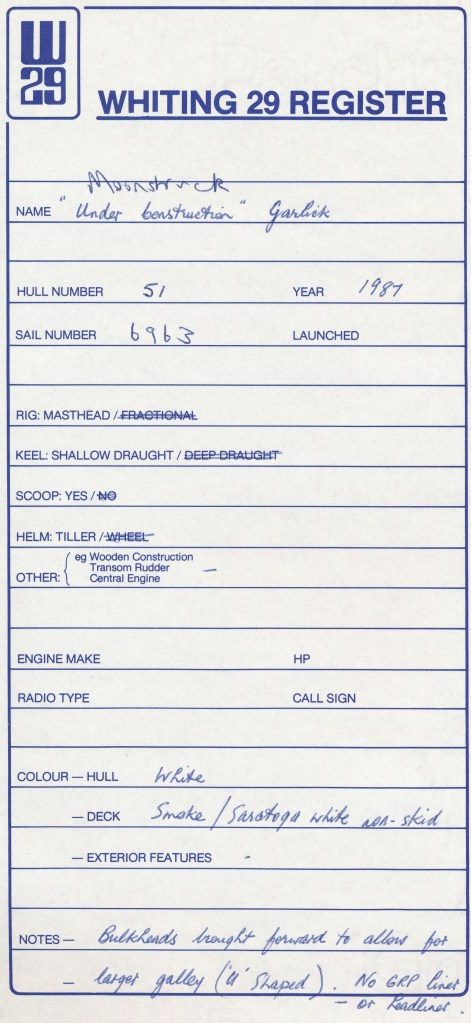 W
29
WHITING 29 REGISTER
Moonstruck
NAME "Under Construction" Garlick
HULL NUMBER 51 YEAR 1987
SAIL NUMBER 6963 LAUNCHED
RIG: MASTHEAD / FRACTIONAL
KEEL: SHALLOW DRAUGHT / DEEP DRAUGHT
SCOOP: YES / NO
HELM: TILLER / WHEEL
eg Wooden Construction
Transom Rudder —
OTHER: Central Engine
ENGINE MAKE HP
RADIO TYPE CALL SIGN
COLOUR — HULL White
— DECK Smoke / Saratoga white non-skid
— EXTERIOR FEATURES -
NOTES — Bulkheads brought forward to allow for
— larger galley ('U' Shaped). No GRP liner
— or headliner.